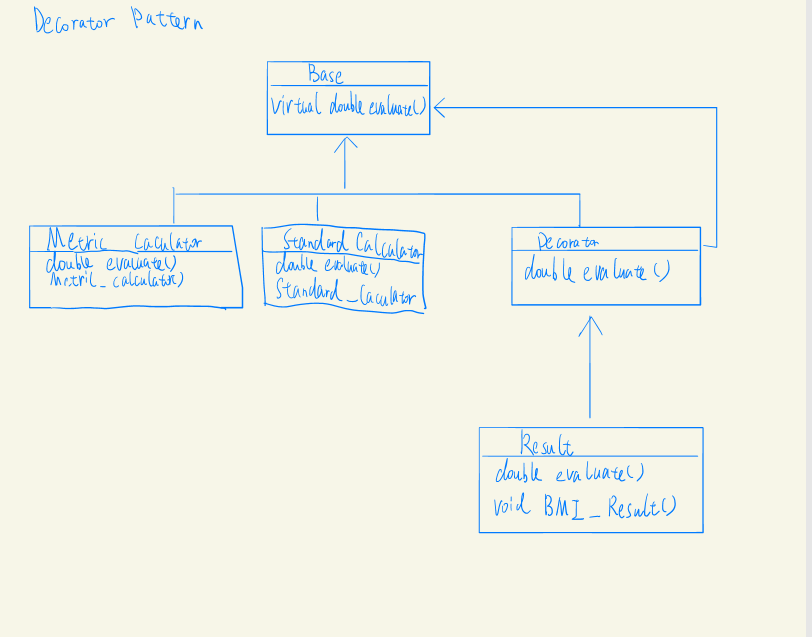 Decorator Pattern
Base
virtual double evaluate()
Metric Caculator
double evaluate()
Metric_calculator)
Standard Calculator
double evaluate()
Standard_Caculator
Decorator
double evaluate()
Result
double evaluate()
void BMI_Result()